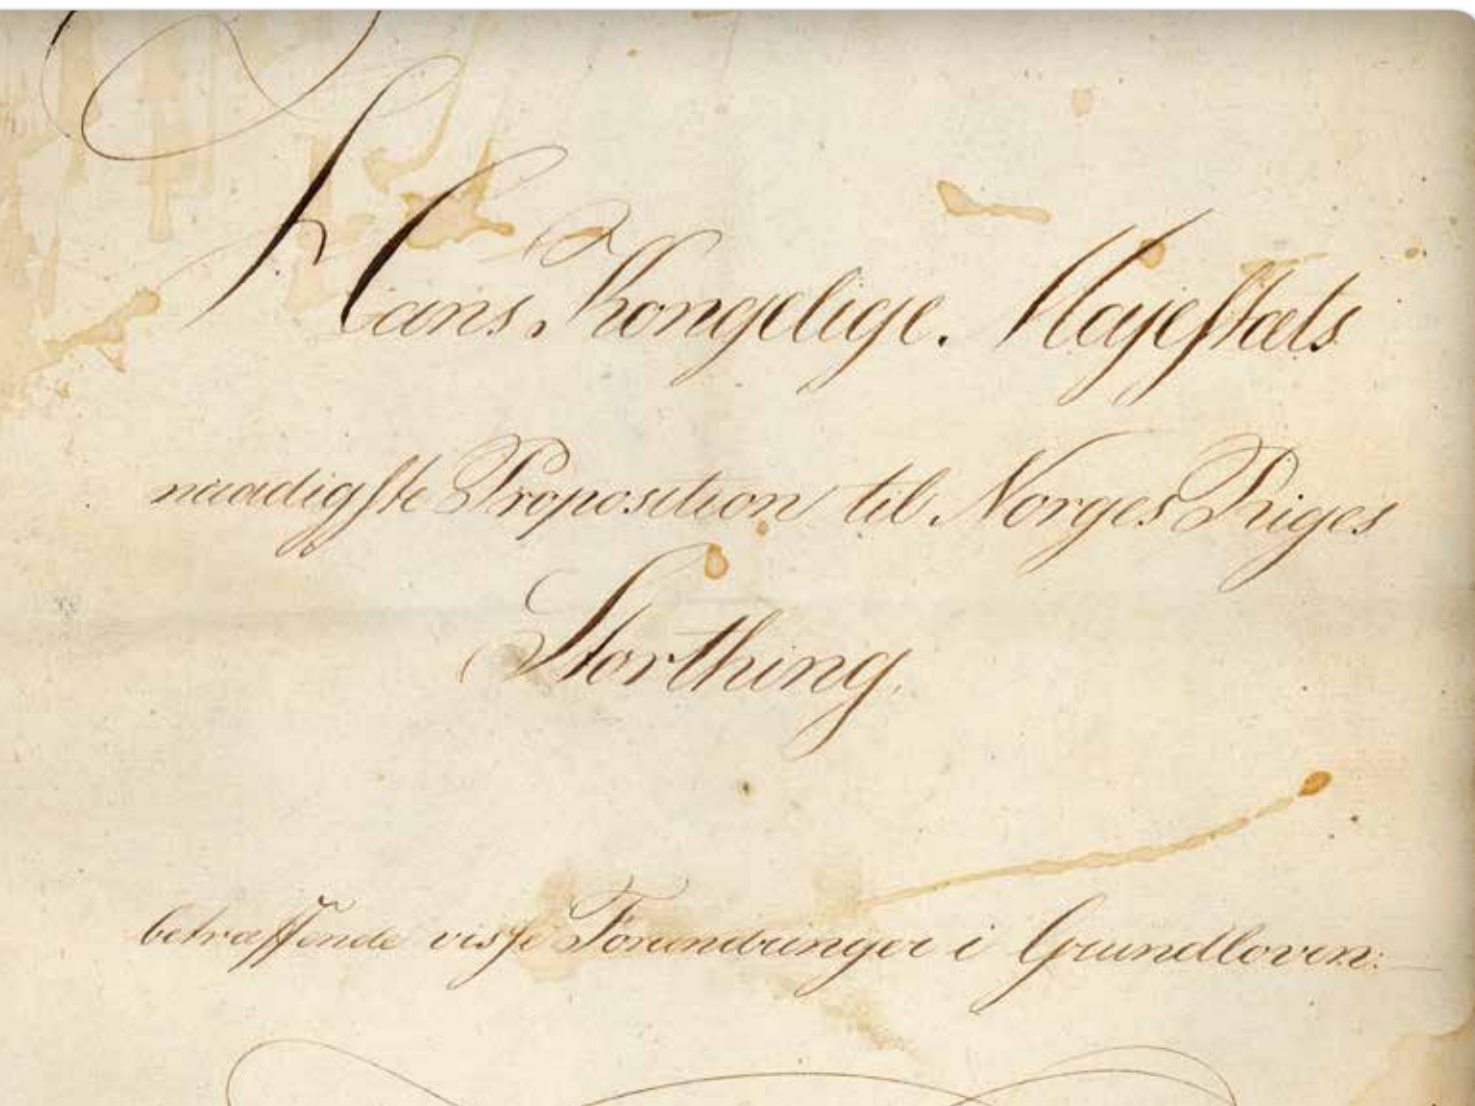 Hans Kongelige Majestæts
naadigste Proposition til Norges Riges
Storthing
betræffende visse Forandringer i Grundloven.